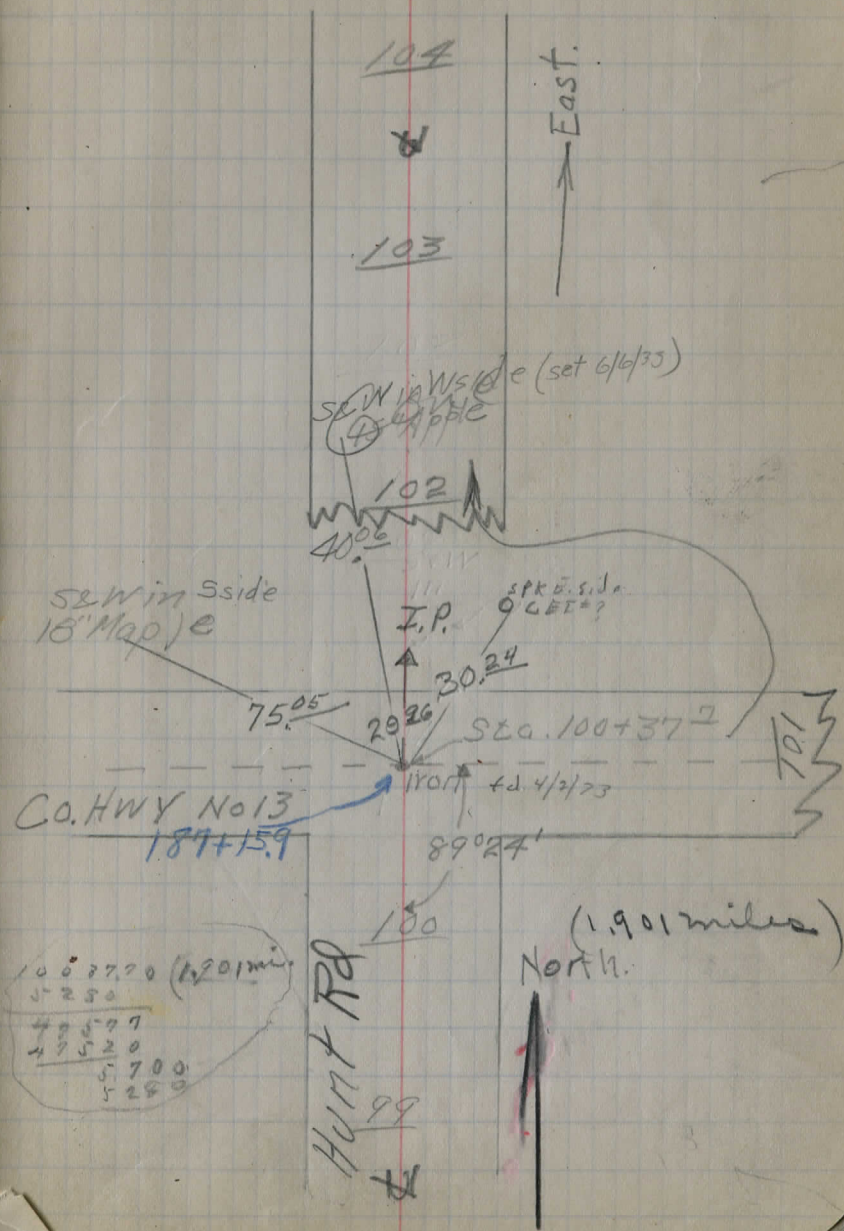 104
East.
℄
103
S&W in W side (set 6/6/33)
Apple
102
40.06
S&W in S side
18" Maple
SPK E. side
I.P.
30.24
75.05
29.26
Sta. 100+37.7
101
Iron
Co. HWY No 13
187+15.9
89°24'
100
(1.901 miles)
North.
10037.70 (1.901 mi.
5280
47577
47520
5700
5280
Hunt Rd
99
℄